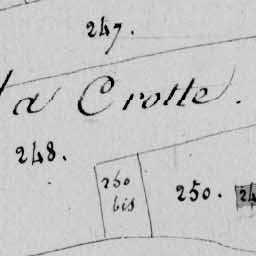 247.
la Crotte.
248.
250
bis
250.
24